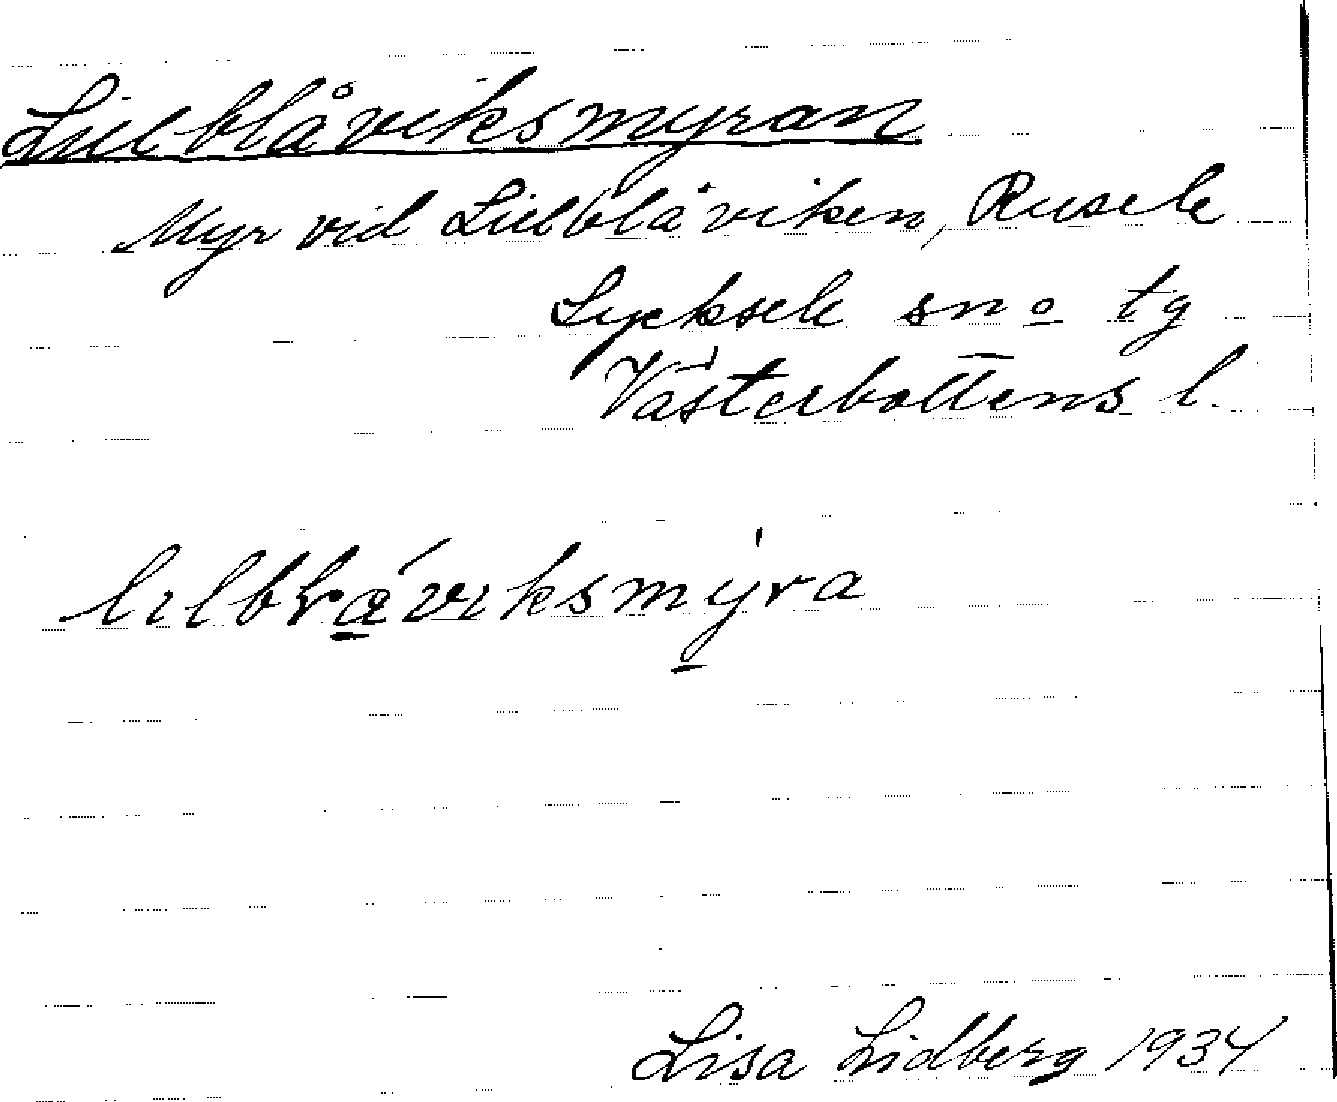 Lillblåviksmyran
Myr vid Lillblåviken, Rusele
Lycksele sn o tg
Västerbottens l.
lilbɽæviksmyra
Lisa Lidberg 1934